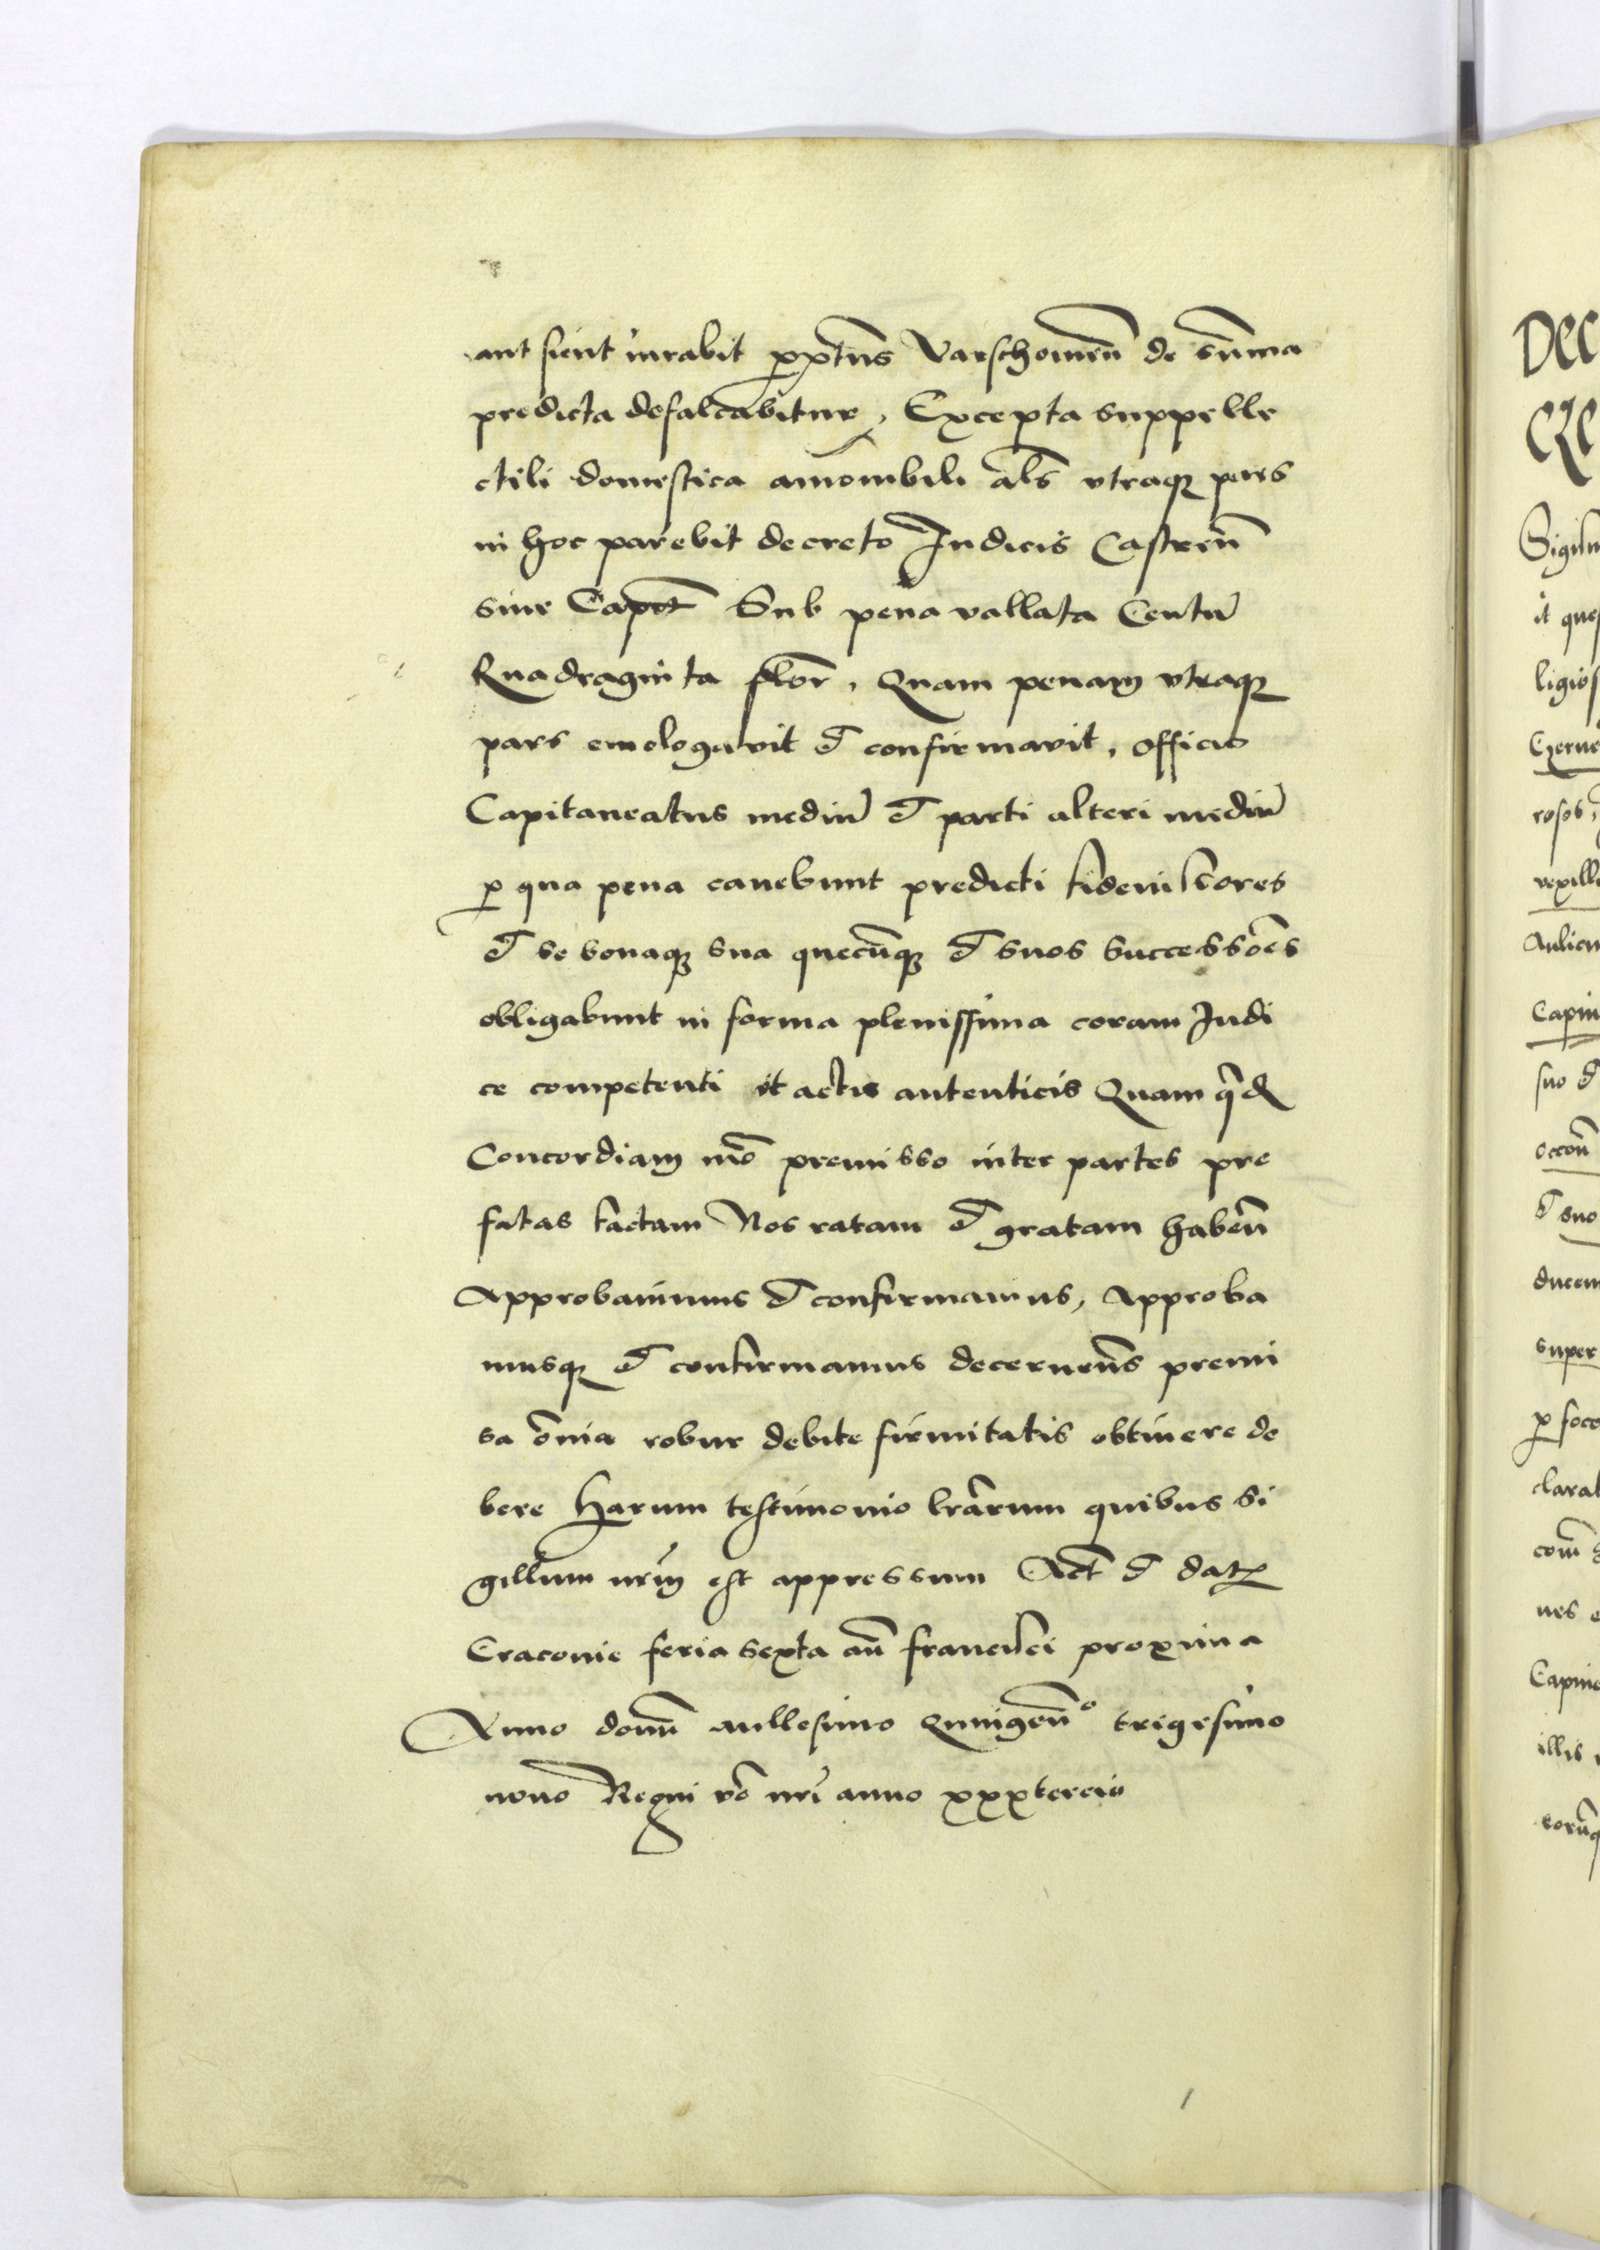 aut sicut iurabit p̱pt̄us Varschowien̄ de sum̄ma
predicta defalcabitur, Excepta suppelle
ctili domestica amombili al̄s vtraqꝫ pars
in hoc parebit decreto Iudicis Castren̄
siue Capit̄ Sub pena vallata Centū
Quadraginta flor̄, Quam penam vtraqꝫ
pars emologavit et confirmavit, officio
Capitaneatus mediū et parti alteri mediū
p̱ qua pena cauebunt predicti fideiussores
et se bonaqꝫ sua quecūqꝫ et suos successōes
obligabunt in forma plenissima coram Iudi
ce competenti et actis autenticis Quam q̄d
Concordiam mō premisso inter partes pre
fatas factam Nos ratam et gratam haben̄
Approbauimus et confirmamus, Approba
musqꝫ et confirmamus decernen̄s premi
sa ōmia robur debite firmitatis obtinere de
bere Harum testimonio lr̄arum quibus si
gillum nr̄m est appressum Act̄ et dat̄
Cracouie feria sexta an̄ francisci proxima
Anno domī millesimo Quingen̄º trigesimo
nono Regni vō nr̄i anno xxxtercio
DEC
Sigism
it ques
ligios
Czerne
rosos,
vexilli
Aulicu
Capin
suo et
occon̄
et suo
ducem
super
p̱ soco
clarat
com̄
nes
Capine
illis